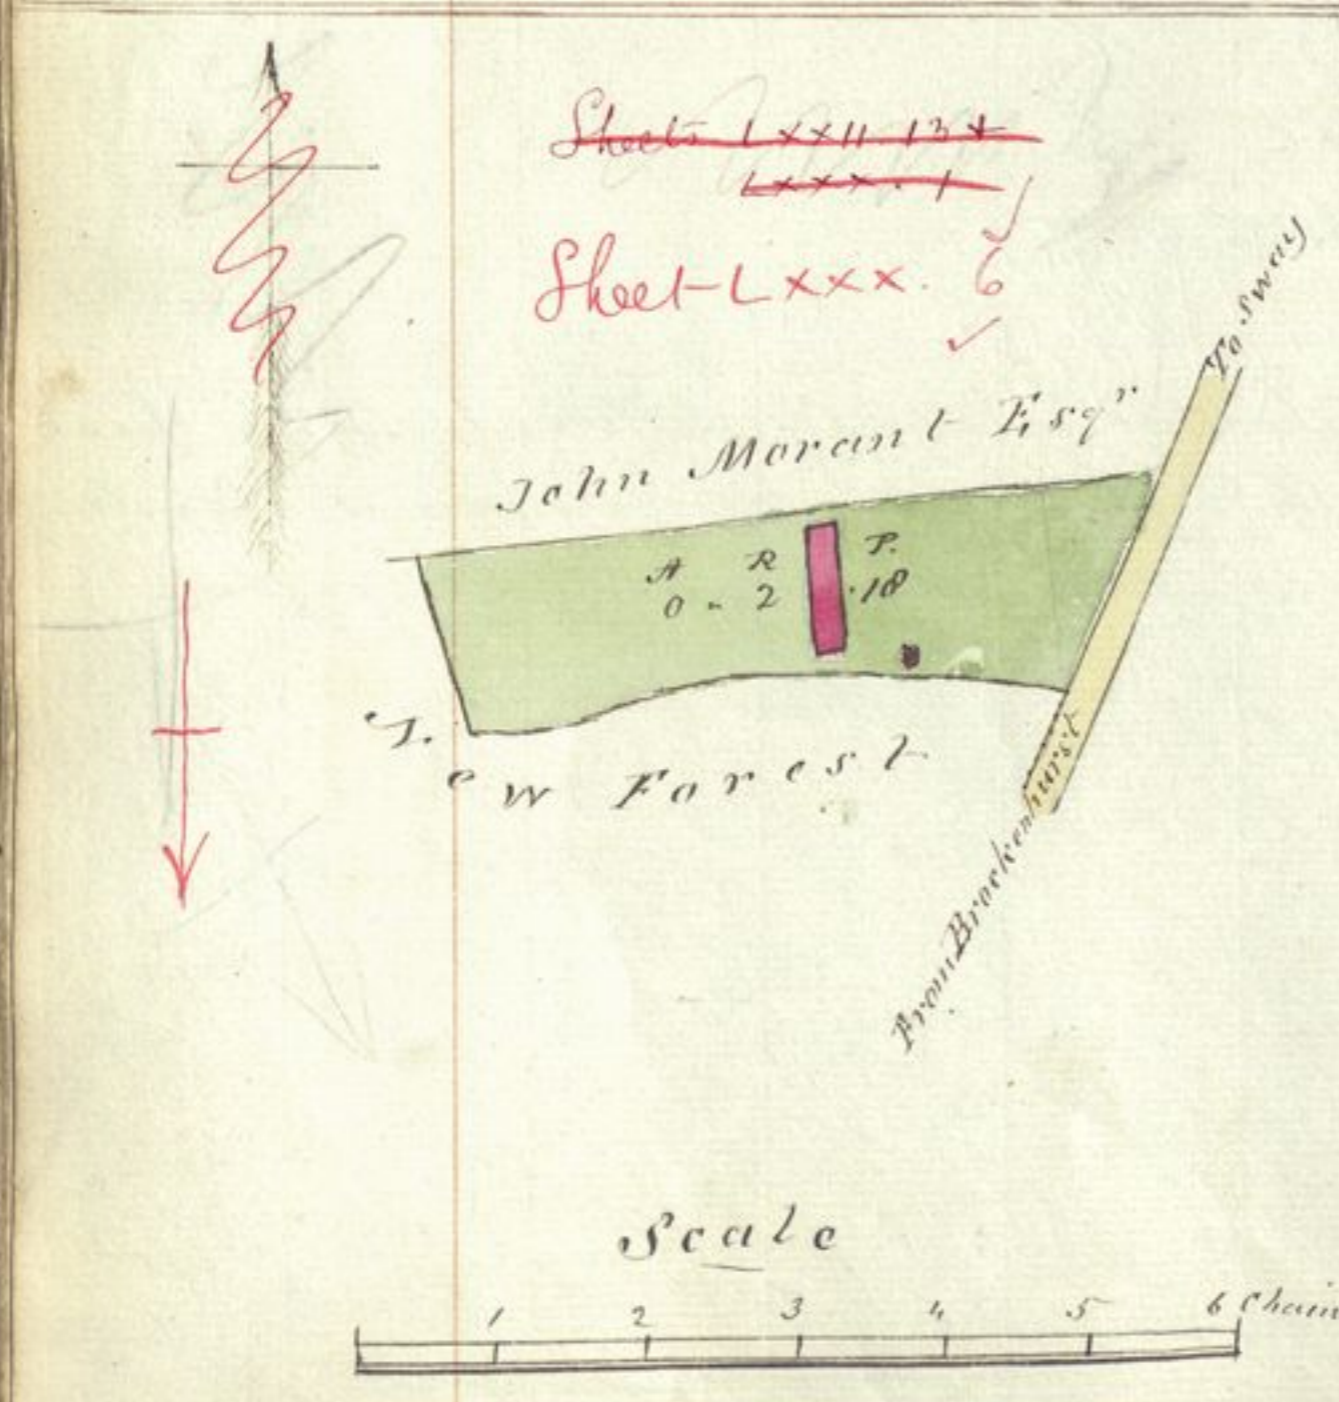 Sheets LXXII 13 +
LXXX. 1
Sheet LXXX. 6
To Sway
John Morant Esqr
A R P.
0 - 2 . 18
New Forest
From Brockenhurst
Scale
1 2 3 4 5 6 Chain